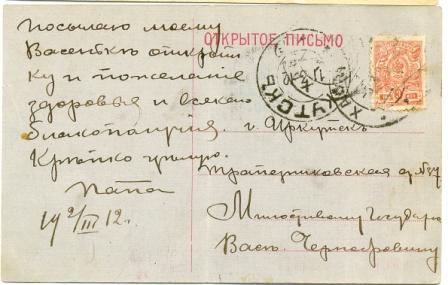 посылаю моему
Васеньке открыт
ку и пожелание
здоровья и всекаго
благополучия.
Крѣпко цѣлую.
Папа
19 2/III 12.
ОТКРЫТОЕ ПИСЬМО
г. Иркутскъ
Траперниковская д. №37
Милостивому Государю
Васѣ
УТСКЪ